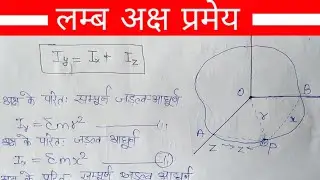 लम्ब अक्ष प्रमेय
I_y = I_x + I_z
अक्ष के परितः सम्पूर्ण जड़त्व-आघूर्ण
I_y = Σmr²
अक्ष के परितः जड़त्व-आघूर्ण
= Σmx² ——— (ii)
के परितः सम्पूर्ण जड़त्व आघूर्ण
O
B
r
x
A
z
P
Z